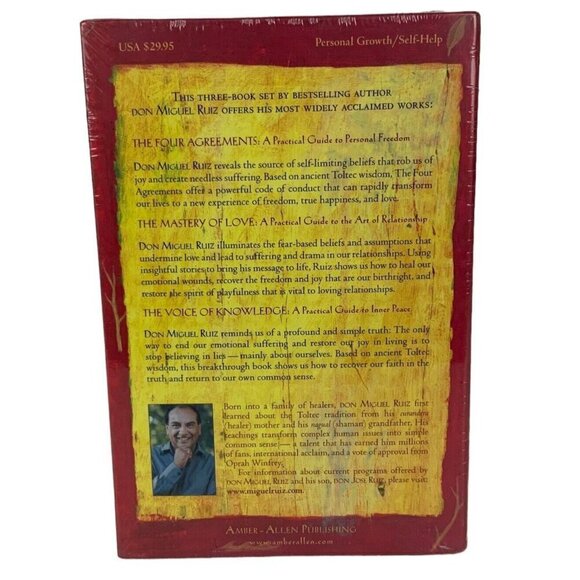 USA $29.95
Personal Growth/Self-Help
THIS THREE-BOOK SET BY BESTSELLING AUTHOR
DON MIGUEL RUIZ OFFERS HIS MOST WIDELY ACCLAIMED WORKS:
THE FOUR AGREEMENTS: A Practical Guide to Personal Freedom
DON MIGUEL RUIZ reveals the source of self-limiting beliefs that rob us of
joy and create needless suffering. Based on ancient Toltec wisdom, The Four
Agreements offer a powerful code of conduct that can rapidly transform
our lives to a new experience of freedom, true happiness, and love.
THE MASTERY OF LOVE: A Practical Guide to the Art of Relationship
DON MIGUEL RUIZ illuminates the fear-based beliefs and assumptions that
undermine love and lead to suffering and drama in our relationships. Using
insightful stories to bring his message to life, Ruiz shows us how to heal our
emotional wounds, recover the freedom and joy that are our birthright, and
restore the spirit of playfulness that is vital to loving relationships.
THE VOICE OF KNOWLEDGE: A Practical Guide to Inner Peace
DON MIGUEL RUIZ reminds us of a profound and simple truth: The only
way to end our emotional suffering and restore our joy in living is to
stop believing in lies — mainly about ourselves. Based on ancient Toltec
wisdom, this breakthrough book shows us how to recover our faith in the
truth and return to our own common sense.
Born into a family of healers, DON MIGUEL RUIZ first
learned about the Toltec tradition from his curandera
(healer) mother and his nagual (shaman) grandfather. His
teachings transform complex human issues into simple
common sense — a talent that has earned him millions
of fans, international acclaim, and a vote of approval from
Oprah Winfrey.
For information about current programs offered by
DON MIGUEL RUIZ and his son, DON JOSE RUIZ, please visit:
www.miguelruiz.com.
AMBER-ALLEN PUBLISHING
www.amberallen.com